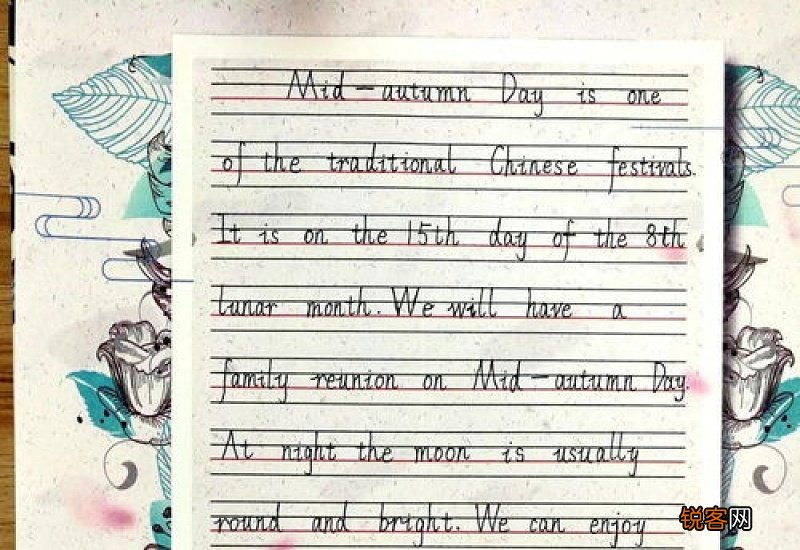 Mid-autumn Day is one
of the traditional Chinese festivals.
It is on the 15th day of the 8th
lunar month. We will have a
family reunion on Mid-autumn Day.
At night the moon is usually
round and bright. We can enjoy
锐客网